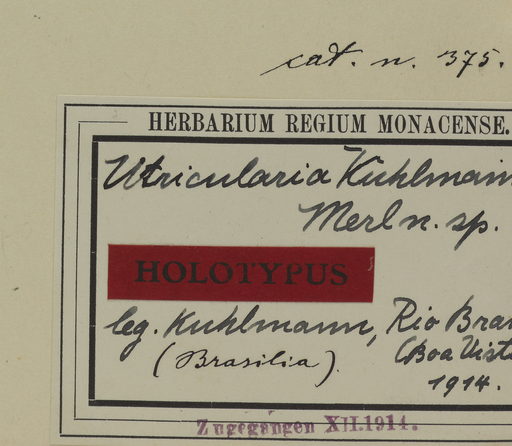 cat. n. 375.
HERBARIUM REGIUM MONACENSE.
Utricularia Kuhlmann
Merl n. sp.
HOLOTYPUS
leg. Kuhlmann, Rio Bran
(Brasilia). (Boa Vista
1914.
Zugegangen XII.1914.